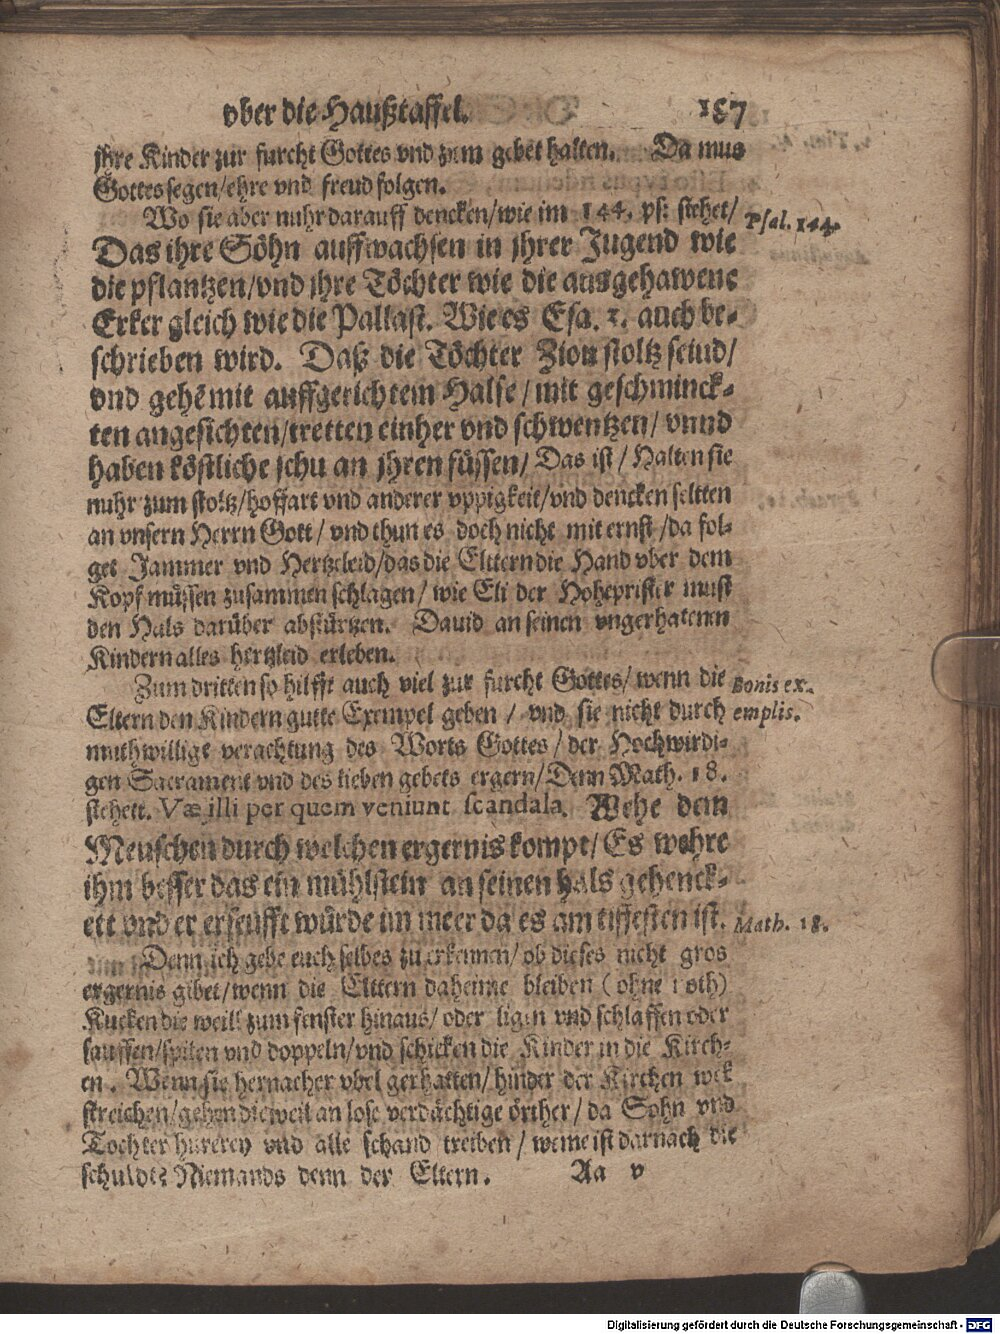 vber die Haußtaffel. 187
jhre Kinder zur furcht Gottes vnd zum gebet halten. Da mus
Gottes segen/ehre vnd freud folgen.
Wo sie aber nuhr darauff dencken/wie im 144. ps: stehet/
Psal. 144.
Das ihre Söhn auffwachsen in jhrer Jugend wie
die pflantzen/vnd jhre Töchter wie die ausgehawene
Erker gleich wie die Pallast. Wie es Esa. 3. auch be-
schrieben wird. Daß die Töchter Zion stoltz seind/
vnd gehē mit auffgerichtem Halse/mit geschminck-
ten angesichten/tretten einher vnd schwentzen/vnnd
haben köstliche schu an jhren füssen/Das ist/Halten sie
nuhr zum stoltz/hoffart vnd anderer vppigkeit/vnd dencken seltten
an vnsern Herrn Gott/vnd thun es doch nicht mit ernst/da fol-
get Jammer vnd Hertzeleid/das die Elttern die Hand vber dem
Kopf müssen zusammen schlagen/wie Eli der Hoheprister must
den Hals darüber abstürtzen. Dauid an seinen vngerhatenen
Kindern alles hertzleid erleben.
Zum dritten so hilfft auch viel zur furcht Gottes/wenn die
Bonis ex-
Eltern den Kindern gutte Exempel geben/vnd sie nicht durch
emplis.
muthwillige verachtung des Worts Gottes/der Hochwirdi-
gen Sacrament vnd des lieben gebets ergern/Denn Math. 18.
stehett. Væ illi per quem veniunt scandala. Wehe dem
Menschen durch welchen ergernis kompt/Es wehre
ihm besser das ein mühlstein an seinen hals gehenck-
ett vnd er erseufft würde im meer da es am tiffesten ist.
Math. 18.
Denn ich gebe euch selbes zu erkennen/ob dieses nicht gros
ergernis gibet/wenn die Elttern daheime bleiben (ohne noth)
Kucken die weill zum fenster hinaus/oder ligen vnd schlaffen oder
sauffen/spilen vnd doppeln/vnd schicken die Kinder in die Kirch-
en. Wenn sie hernacher vbel gerhatten/hinder der Kirchen weck
streichen/gehen die weil an lose verdächtige örther/da Sohn vnd
Tochter hurerey vnd alle schand treiben/weme ist darnach die
schuldt? Niemands denn der Eltern. Aa v
Digitalisierung gefördert durch die Deutsche Forschungsgemeinschaft - DFG